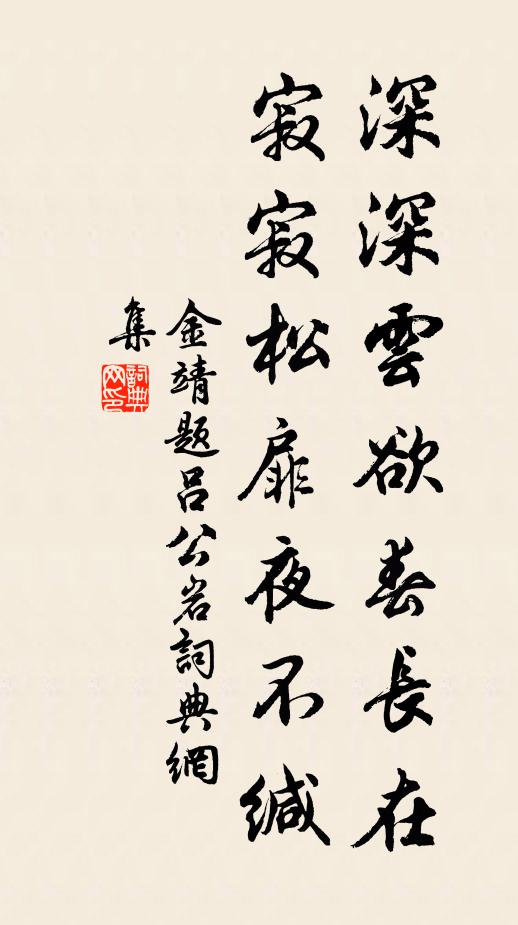 深深雲欲春長在
寂寂松扉夜不緘
金靖題呂公岩詞典網
集
詞典
网印